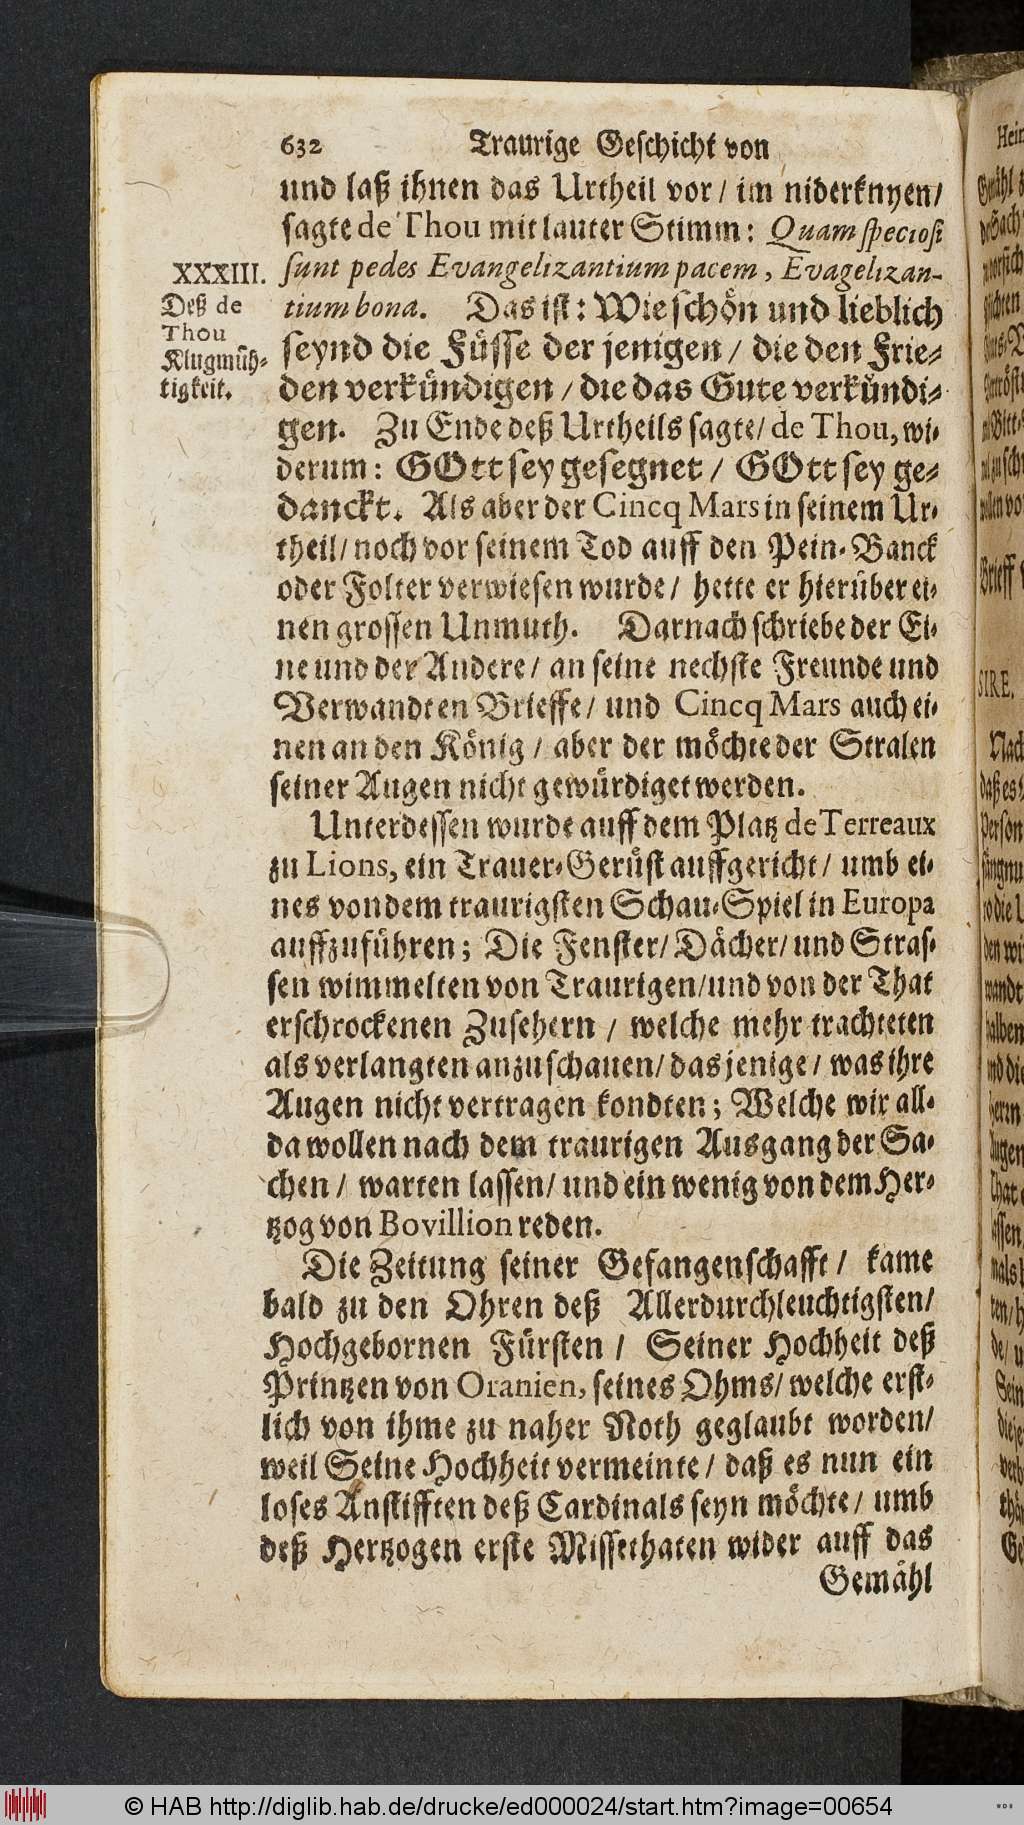 632 Traurige Geschicht von
und laß ihnen das Urtheil vor / im niderknyen /
sagte de Thou mit lauter Stimm: Quam speciosi
sunt pedes Evangelizantium pacem, Evagelizan-
tium bona. Das ist: Wie schön und lieblich
seynd die Füsse der jenigen / die den Frie-
den verkündigen / die das Gute verkündi-
gen. Zu Ende deß Urtheils sagte / de Thou, wi-
derum: GOtt sey gesegnet / GOtt sey ge-
danckt. Als aber der Cincq Mars in seinem Ur-
theil / noch vor seinem Tod auff den Pein-Banck
oder Folter verwiesen wurde / hette er hierüber ei-
nen grossen Unmuth. Darnach schriebe der Ei-
ne und der Andere / an seine nechste Freunde und
Verwandten Brieffe / und Cincq Mars auch ei-
nen an den König / aber der möchte der Stralen
seiner Augen nicht gewürdiget werden.
Unterdessen wurde auff dem Platz de Terreaux
zu Lions, ein Trauer-Gerüst auffgericht / umb ei-
nes von dem traurigsten Schau-Spiel in Europa
auffzuführen; Die Fenster / Dächer / und Stras-
sen wimmelten von Traurigen / und von der That
erschrockenen Zusehern / welche mehr trachteten
als verlangten anzuschauen / das jenige / was ihre
Augen nicht vertragen kondten; Welche wir all-
da wollen nach dem traurigen Ausgang der Sa-
chen / warten lassen / und ein wenig von dem Her-
tzog von Bovillion reden.
Die Zeitung seiner Gefangenschafft / kame
bald zu den Ohren deß Allerdurchleuchtigsten /
Hochgebornen Fürsten / Seiner Hochheit deß
Printzen von Oranien, seines Ohms / welche erst-
lich von ihme zu naher Noth geglaubt worden /
weil Seine Hochheit vermeinte / daß es nun ein
loses Anstifften deß Cardinals seyn möchte / umb
deß Hertzogen erste Missethaten wider auff das
Gemähl
XXXIII.
Deß de
Thou
Klugmüh-
tigkeit.
SIRE.
© HAB http://diglib.hab.de/drucke/ed000024/start.htm?image=00654